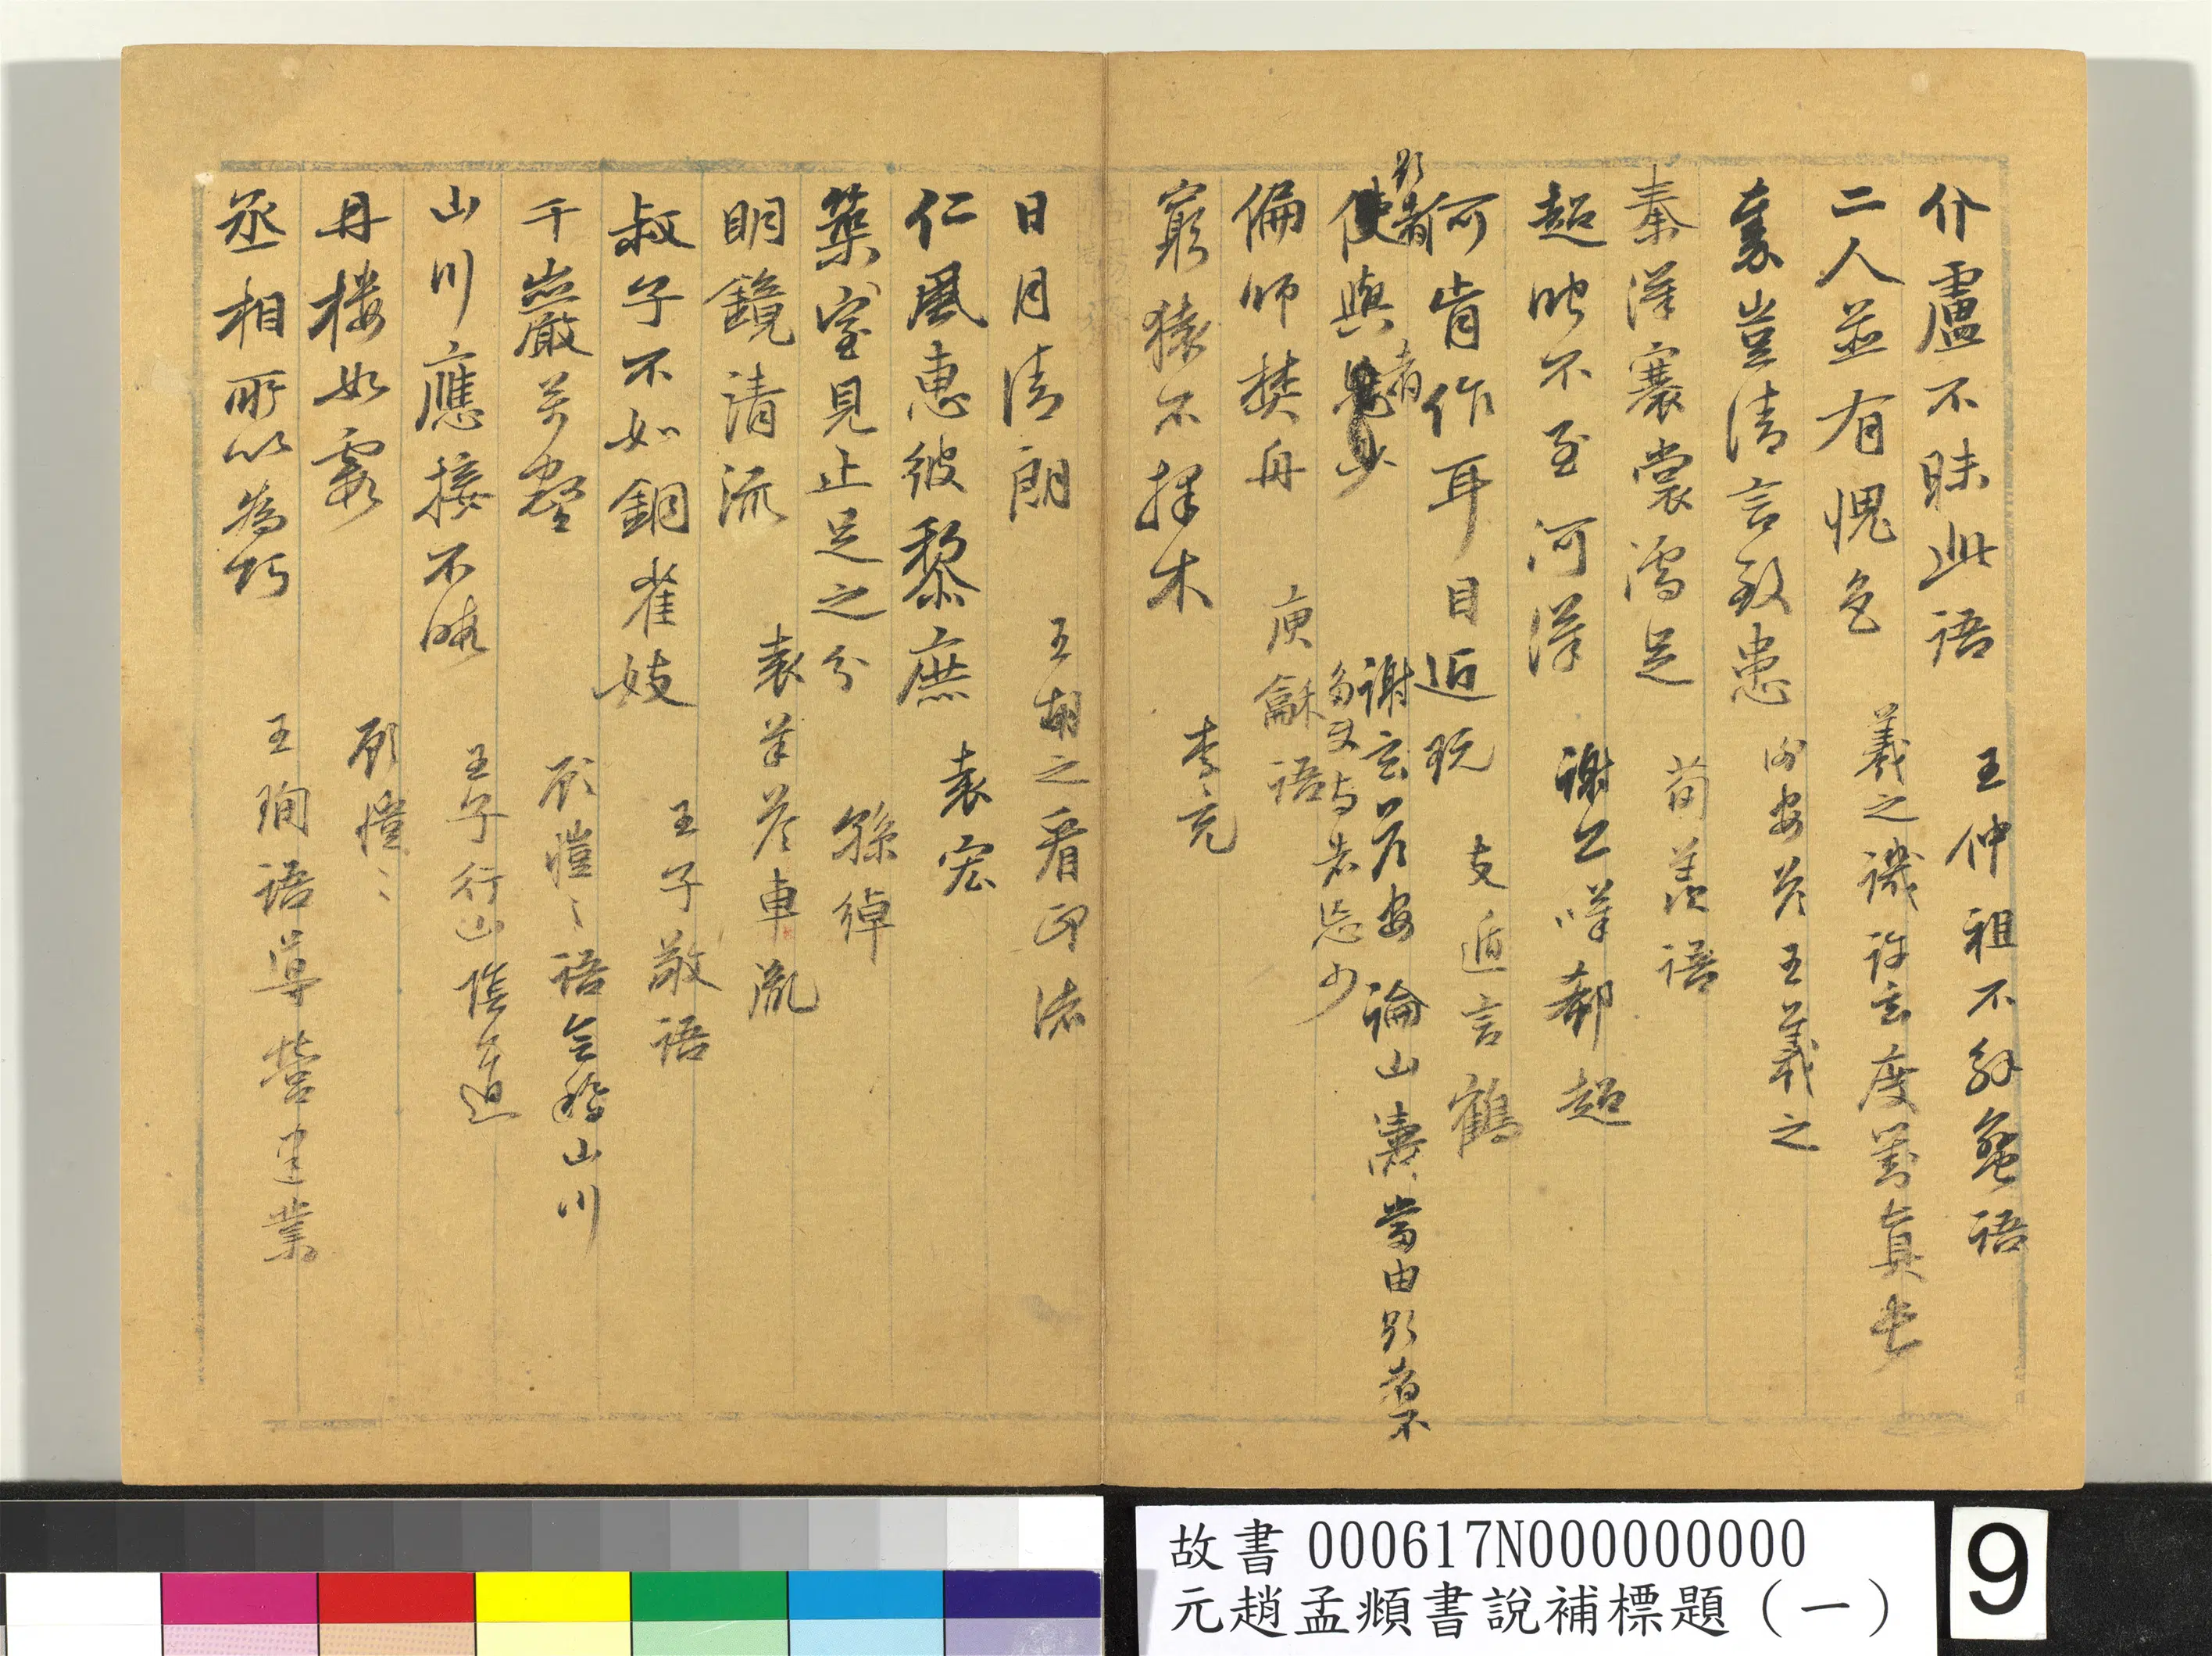 介盧不昧此語　王仲祖不解蠻語
二人並有愧色　羲之譏許玄度劉真長
秦豈清言致患　謝安答王羲之
秦漢褰裳濡足　荀羨語
超時不至河漢　謝公嘆郗超
何肯作耳目近玩　支遁言鶴
影者　謝玄答安　論山濤當由影者不
使與者少　多又與者忘少
偏師焚舟　庾龢語
窮猿不擇木　李充
日月清朗　王胡之看印渚
仁風惠彼黎庶　袁宏
築室見止足之分　孫綽
明鏡清流　袁羊答車胤
叔子不如銅雀妓　王子敬語
千巖萬壑　顧愷〻語會稽山川
山川應接不暇　王子行山陰道
丹樓如霞　顧愷〻
丞相所以為巧　王珣語導營建業
故書 000617N000000000
元趙孟頫書說補標題（一）
9